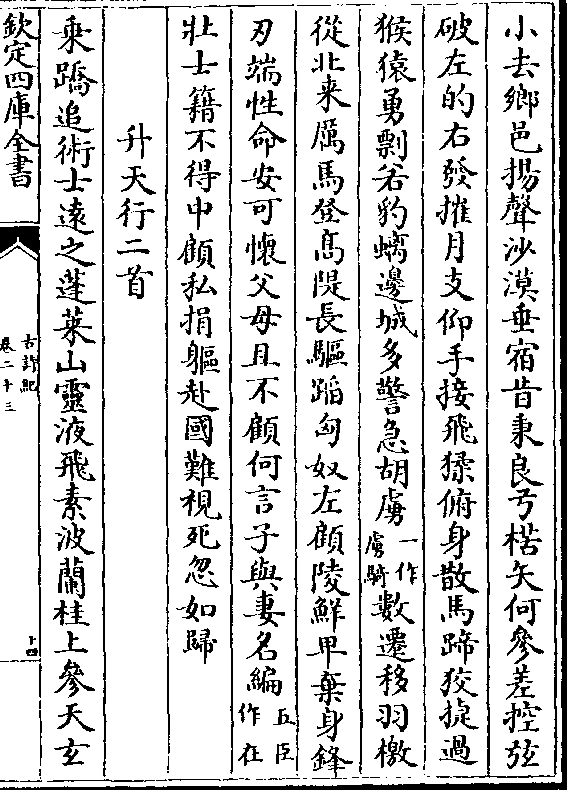 小去鄉邑揚聲沙漠垂宿昔秉良弓楛矢何參差控弦
破左的右發摧月支仰手接飛猱俯身散馬蹄狡捷過
猴猿勇剽若豹螭邊城多警急胡虜一作虜騎數遷移羽檄
從北来厲馬登髙隄長驅蹈匈奴左顧陵鮮卑棄身鋒
刃端性命安可懷父母且不顧何言子與妻名編五臣作在
壯士籍不得中顧私捐軀赴國難視死忽如歸
升天行二首
乘蹻追術士逺之蓬萊山靈液飛素波蘭桂上參天玄
欽定四庫全書
古詩紀
卷二十三
十四